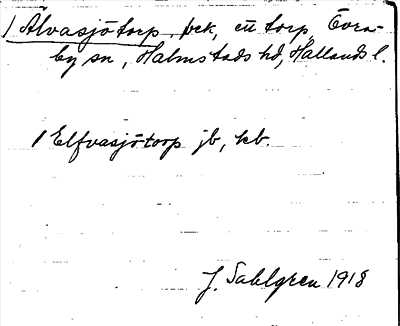 1 Älvasjötorp, bek, ett torp, Övra-
by sn, Halmstads hd, Hallands l.
1 Elfvasjötorp jb, kb.
J. Sahlgren 1918